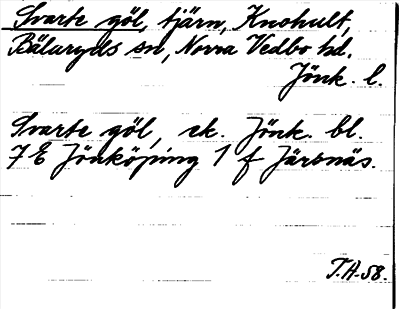 Svarte göl, tjärn, Knohult,
Bälaryds sn, Norra Vedbo hd.
Jönk. l.
Svarte göl, ek. Jönk. bl.
7 E Jönköping 1 f Järsnäs.
T.H-58.